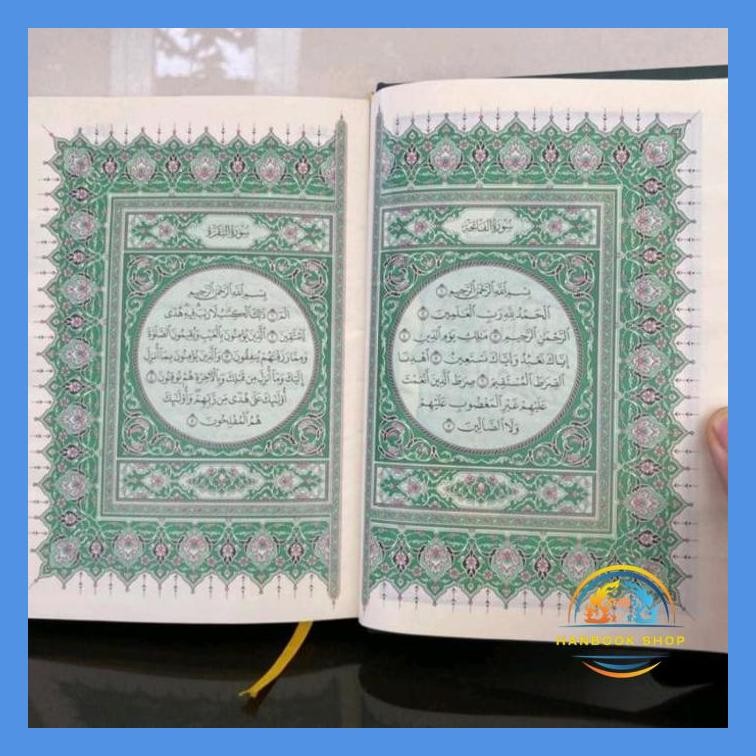 سورة الفاتحة
بِسْمِ ٱللَّهِ ٱلرَّحْمَٰنِ ٱلرَّحِيمِ ١
ٱلْحَمْدُ لِلَّهِ رَبِّ ٱلْعَٰلَمِينَ ٢
ٱلرَّحْمَٰنِ ٱلرَّحِيمِ ٣ مَٰلِكِ يَوْمِ ٱلدِّينِ ٤
إِيَّاكَ نَعْبُدُ وَإِيَّاكَ نَسْتَعِينُ ٥ ٱهْدِنَا
ٱلصِّرَٰطَ ٱلْمُسْتَقِيمَ ٦ صِرَٰطَ ٱلَّذِينَ أَنْعَمْتَ
عَلَيْهِمْ غَيْرِ ٱلْمَغْضُوبِ عَلَيْهِمْ
وَلَا ٱلضَّآلِّينَ ٧
سورة البقرة
بِسْمِ ٱللَّهِ ٱلرَّحْمَٰنِ ٱلرَّحِيمِ
الٓمٓ ١ ذَٰلِكَ ٱلْكِتَٰبُ لَا رَيْبَ فِيهِ هُدًى
لِّلْمُتَّقِينَ ٢ ٱلَّذِينَ يُؤْمِنُونَ بِٱلْغَيْبِ وَيُقِيمُونَ ٱلصَّلَوٰةَ
وَمِمَّا رَزَقْنَٰهُمْ يُنفِقُونَ ٣ وَٱلَّذِينَ يُؤْمِنُونَ بِمَآ أُنزِلَ
إِلَيْكَ وَمَآ أُنزِلَ مِن قَبْلِكَ وَبِٱلْءَاخِرَةِ هُمْ يُوقِنُونَ ٤
أُو۟لَٰٓئِكَ عَلَىٰ هُدًى مِّن رَّبِّهِمْ وَأُو۟لَٰٓئِكَ
هُمُ ٱلْمُفْلِحُونَ ٥
HANBOOK SHOP